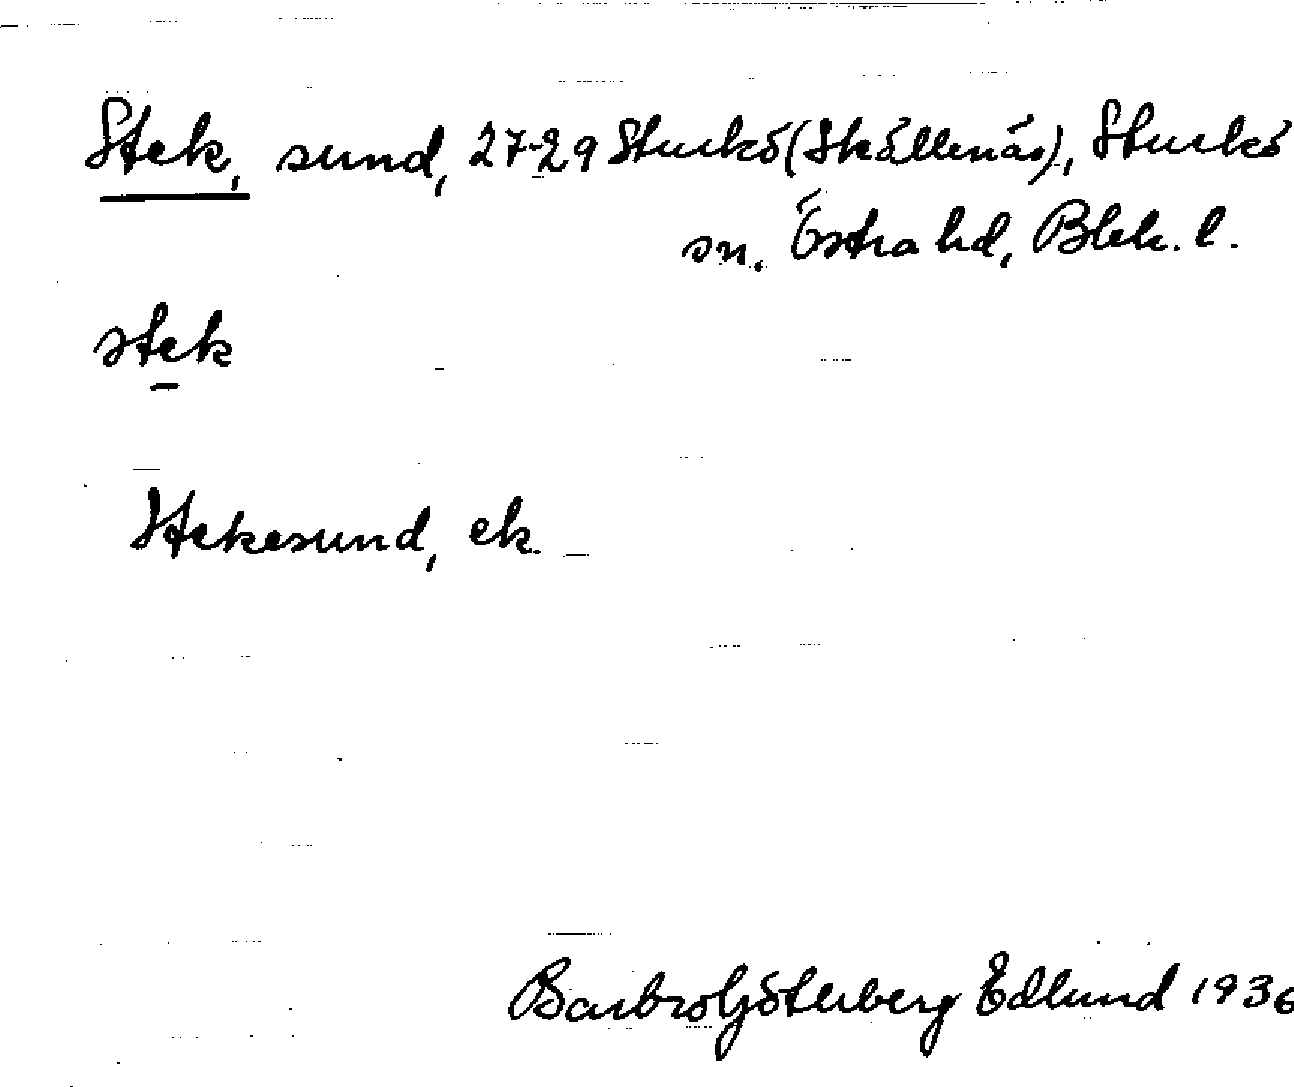 Stek, sund, 27-29 Sturkö (Skällenäs), Sturkö
sn. Östra hd, Blek. l.
stek
Stekesund, ek.
Barbro Göterberg Edlund 1936